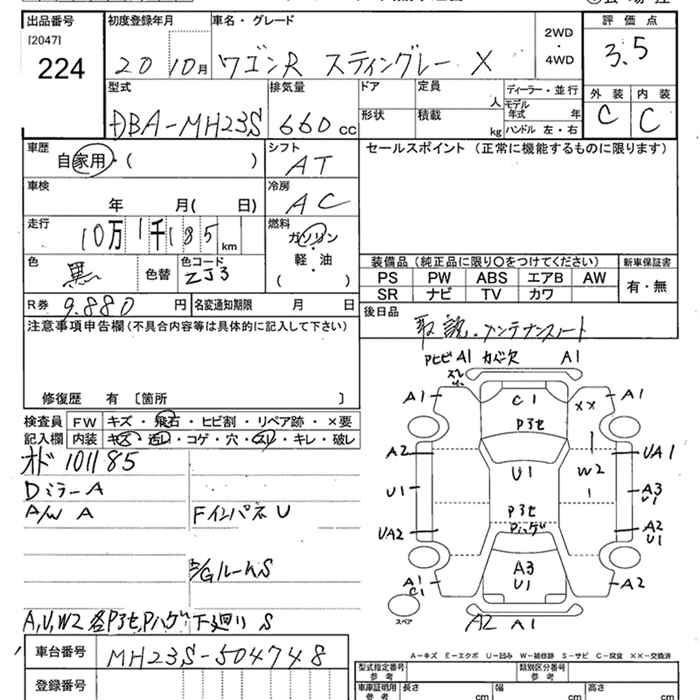 出品番号 初度登録年月 車名・グレード 2WD・4WD 評価点
[2047]
224
20 10月 ワゴンR スティングレー X 3.5
型式 排気量 ドア 定員 人 ディーラー・並行 外装 内装
DBA-MH23S 660cc 形状 積載 kg モデル年式 年 C C
ハンドル 左・右
車歴 自家用・( ) シフト AT セールスポイント (正常に機能するものに限ります)
車検 年 月( 日) 冷房 AC
走行 10万1千185km 燃料 ガソリン・軽・油( )
色 黒 色替 色コード ZJ3
装備品(純正品に限り○をつけてください) 新車保証書
PS PW ABS エアB AW 有・無
SR ナビ TV カワ
R券 9.880円 名変通知期限 月 日
後日品 取説、メンテナンスノート
注意事項申告欄(不具合内容等は具体的に記入して下さい)
修復歴 有 〔箇所 〕
検査員記入欄 FW キズ・飛石・ヒビ割・リペア跡・×要
内装 キズ・汚い・コゲ・穴・スリ・キレ・破レ
オド 101185
Dミラー A
A/W A FインパネU
B/GルームS
A,U,W2 各Pアセ,Pハゲ 下廻り S
車台番号 MH23S-504748
登録番号
A1 カバ欠 A1
A1 C1 Pアセ ×× A1
A2 UA1
U1 U1 W2 A3 U1
UA2 Pアセ Pハゲ A2 U1
A1 C1 A3 U1 A2
スペア
A2 A1
A-キズ E-エクボ U-凹み W-補修跡 S-サビ C-腐食 ××-交換済
型式指定番号 参考 類別区分番号 参考
車庫証明用 参考 長さ cm 幅 cm 高さ cm